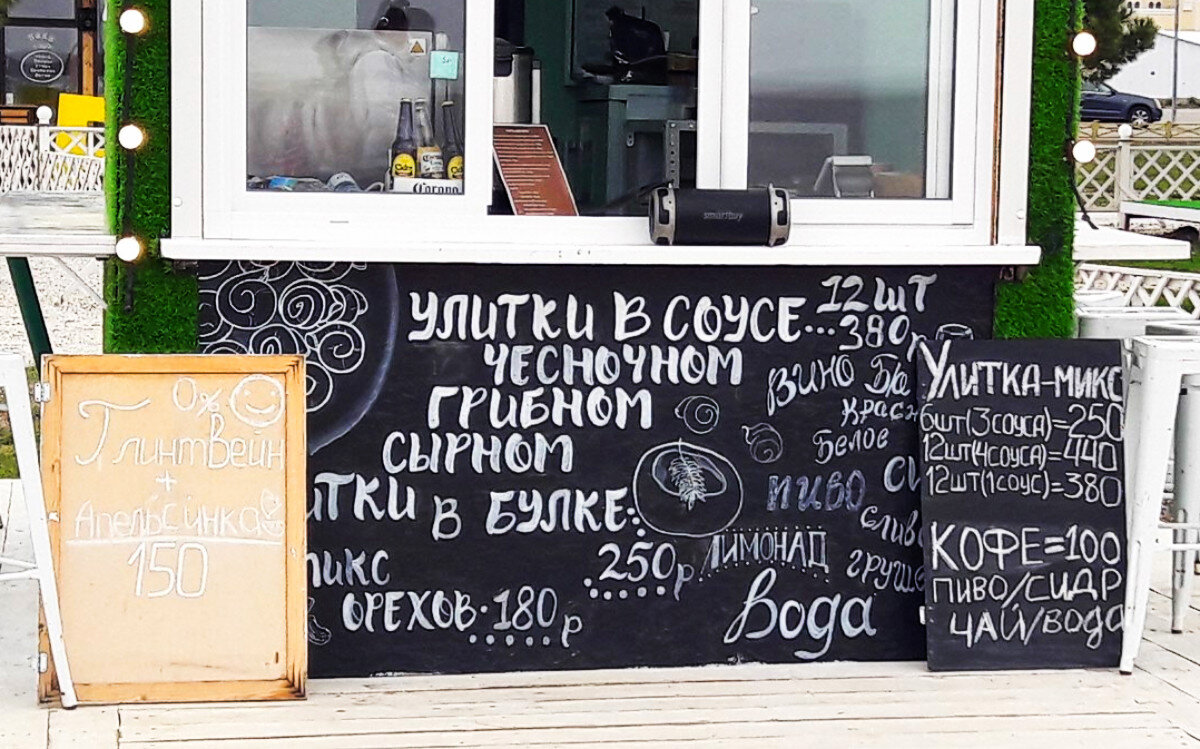 0%
Глинтвейн
+
Апельсинка
150
УЛИТКИ В СОУСЕ...
12 ШТ
380р
ЧЕСНОЧНОМ
ГРИБНОМ
СЫРНОМ
ИТКИ В БУЛКЕ:
.250р
микс
ОРЕХОВ.180р
ВИНО
КРАСН
Белое
ПИВО
СИ
СЛИВ
ГРУШЕ
ЛИМОНАД
Вода
УЛИТКА-МИКС
6шт(3СОУСА)=250
12шт(4СОУСА)=440
12шт(1СОУС)=380
КОФЕ=100
ПИВО/СИДР
ЧАЙ/ВОДА
smartbuy
Corona